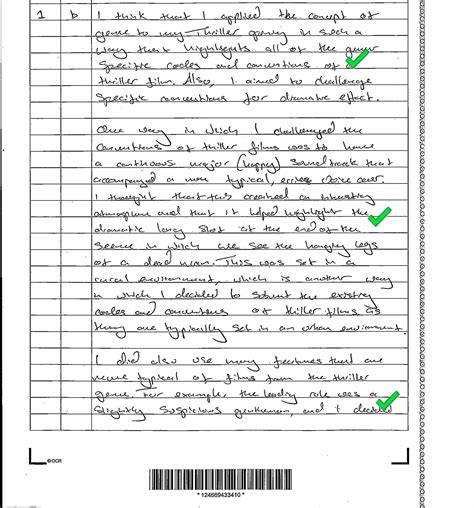 1 b I think that I applied the concept of
genre to my Thriller opening in such a
way that highlights all of the genre
specific codes and conventions of a
thriller film. Also, I aimed to challenge
specific conventions for dramatic effect.
One way in which I challenged the
conventions of thriller films was to have
a continuous major (happy) soundtrack that
accompanied a more typical, voice over.
I thought that this created an interesting
atmosphere and that it helped highlight the
dramatic long shot at the end of the
scene in which we see the hanging legs
of a dead man. This was set in a
rural environment, which is another way
in which I decided to the existing
codes and conventions of thriller films as
they are typically set in an urban enviroment.
I did also use many features that are
more typical of films from the thriller
genre. For example, the leading role was a
slightly suspicious gentleman, and I decided
©OCR
* 124669433410 *